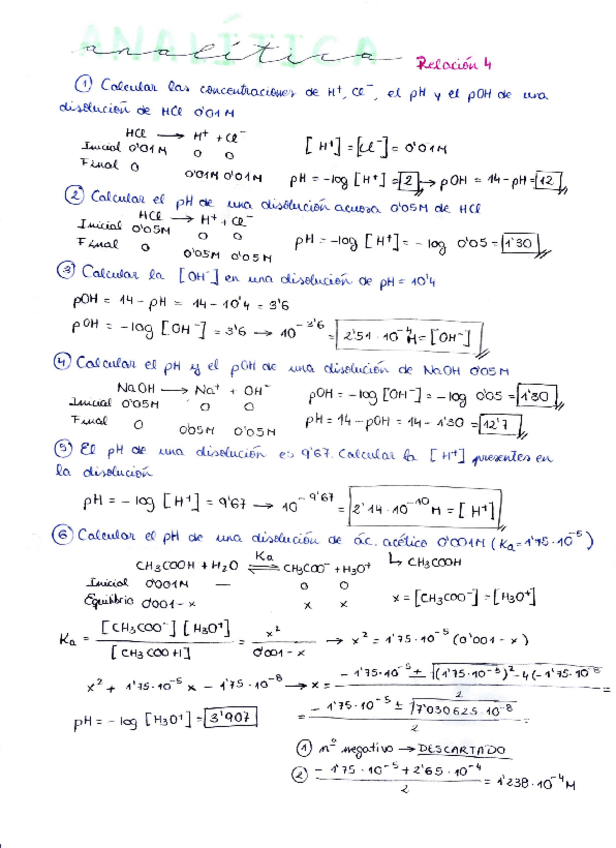 ANALÍTICA
analítica Relación 4
① Calcular las concentraciones de H⁺, Cl⁻, el pH y el pOH de una
disolución de HCl 0'01M
HCl ⟶ H⁺ + Cl⁻
Inicial 0'01M 0 0 [H⁺] = [Cl⁻] = 0'01M
Final 0 0'01M 0'01M pH = -log [H⁺] = 2 → pOH = 14 - pH = 12
② Calcular el pH de una disolución acuosa 0'05M de HCl
HCl ⟶ H⁺ + Cl⁻
Inicial 0'05M 0 0 pH = -log [H⁺] = - log 0'05 = 1'30
Final 0 0'05M 0'05M
③ Calcular la [OH⁻] en una disolución de pH = 10'4
pOH = 14 - pH = 14 - 10'4 = 3'6
pOH = -log [OH⁻] = 3'6 → 10^-3'6 = 2'51·10⁻⁴M = [OH⁻]
④ Calcular el pH y el pOH de una disolución de NaOH 0'05M
NaOH ⟶ Na⁺ + OH⁻ pOH = -log [OH⁻] = - log 0'05 = 1'30
Inicial 0'05M 0 0
Final 0 0'05M 0'05M pH = 14 - pOH = 14 - 1'30 = 12'7
⑤ El pH de una disolución es 9'67. Calcular la [H⁺] presentes en
la disolución
pH = - log [H⁺] = 9'67 → 10^-9'67 = 2'14·10⁻¹⁰ M = [H⁺]
⑥ Calcular el pH de una disolución de ác. acético 0'001M (Ka = 1'75·10⁻⁵)
CH₃COOH + H₂O ⇌ Ka CH₃COO⁻ + H₃O⁺ ↳ CH₃COOH
Inicial 0'001M — 0 0
Equilibrio 0'001-x x x x = [CH₃COO⁻] = [H₃O⁺]
Ka = [CH₃COO⁻][H₃O⁺] / [CH₃COOH] = x² / 0'001-x → x² = 1'75·10⁻⁵ (0'001 - x)
x² + 1'75·10⁻⁵ x - 1'75·10⁻⁸ → x = -1'75·10⁻⁵ ± √(1'75·10⁻⁵)² - 4(-1'75·10⁻⁸ / 2 =
pH = - log [H₃O⁺] = 3'907 = -1'75·10⁻⁵ ± √7'030625·10⁻⁸ / 2 =
① nº negativo → DESCARTADO
② -1'75·10⁻⁵ + 2'65·10⁻⁴ / 2 = 1'238·10⁻⁴M